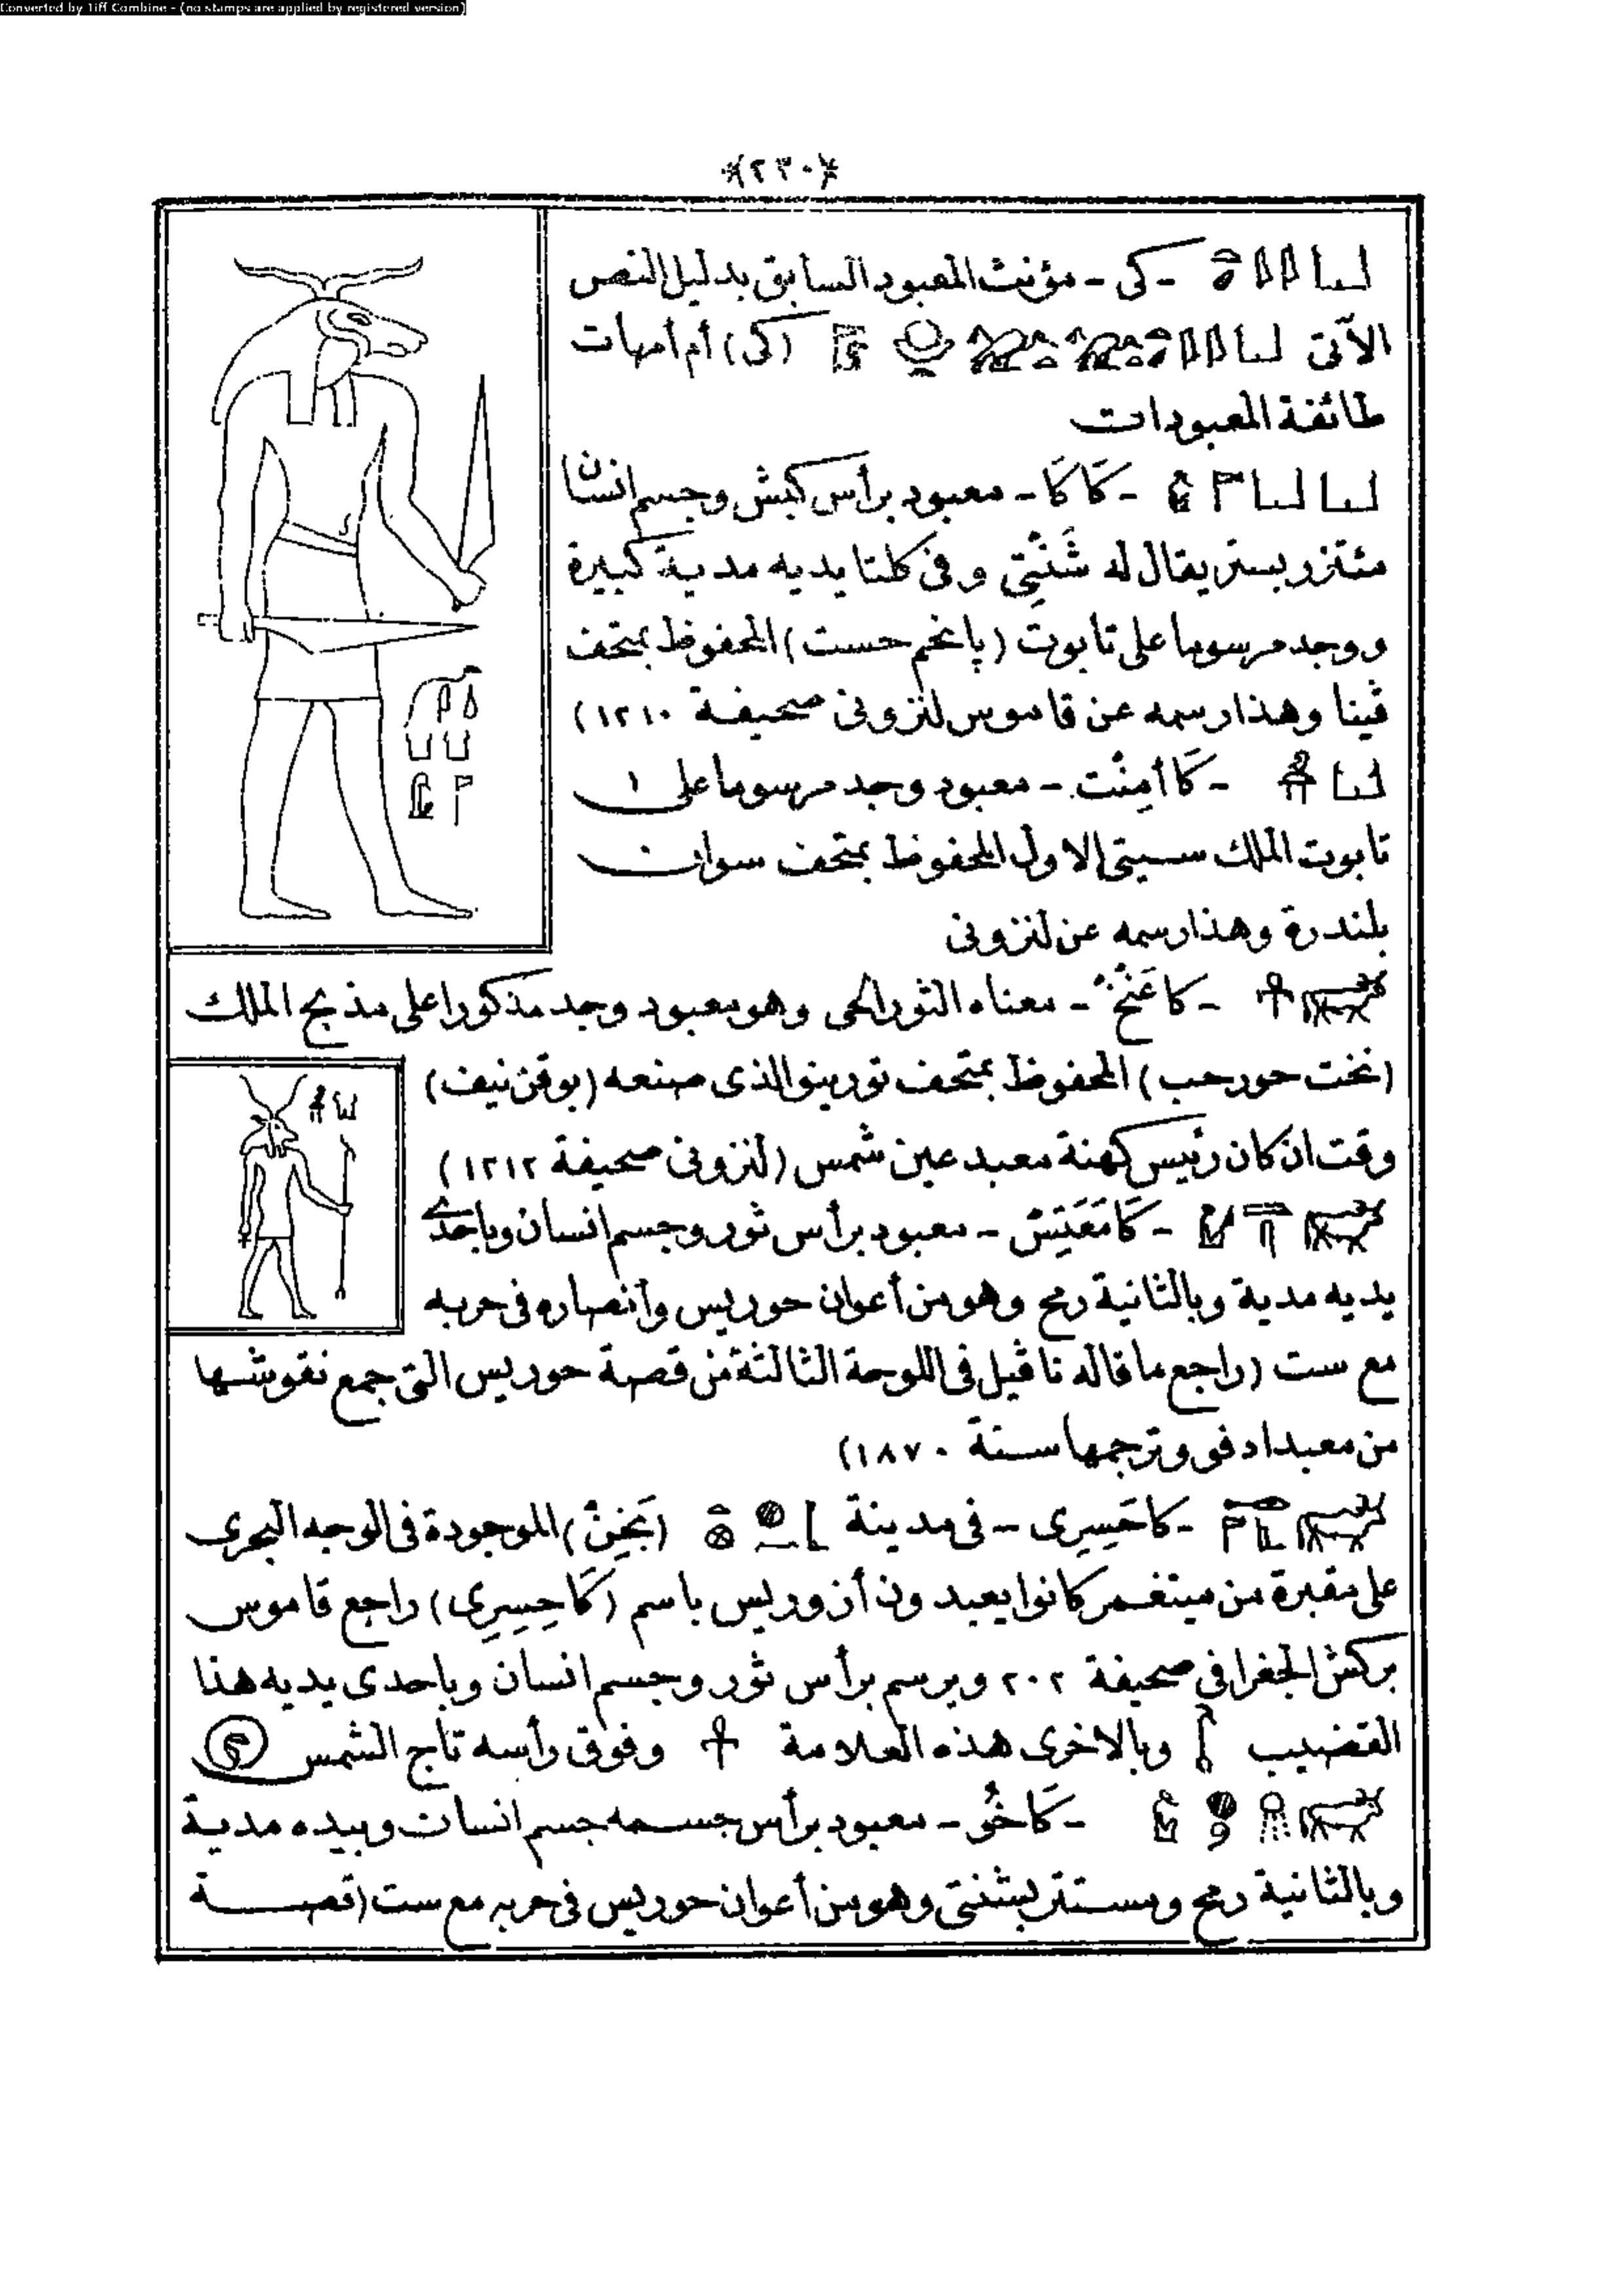 Converted by Tiff Combine - (no stamps are applied by registered version)
﴿٢٣٠﴾
- كى - مؤنث المعبود السابق بدليل النص
الآتى (كى) أم أمهات
طائفة المعبودات
- كَاكَا - معبود برأس كبش وجسم انسان
متزر بستر يقال له شَنْتِى وفى كلتا يديه مدية كبيرة
ووجد مرسوما على تابوت (پانخم حست) المحفوظ بمتحف
ڤينا وهذا رسمه عن قاموس لنزونى صحيفة ١٢١٠)
- كَا أمِنْت - معبود وجد مرسوما على
تابوت الملك سيتى الاول المحفوظ بمتحف سوان
بلندرة وهذا رسمه عن لنزونى
- كاعَنْخْ - معناه الثور الحى وهو معبود وجد مذكورا على مذبح الملك
(نخت حور حب) المحفوظ بمتحف تورينو الذى صنعه (بوقن نيف)
وقت ان كان رئيس كهنة معبد عين شمس (لنزونى صحيفة ١٢١٢)
- معبود برأس ثور وجسم انسان وباحدى
يديه مدية وبالثانية رمح وهو من أعوان حوريس وأنصاره فى حربه
مع ست (راجع ما قاله ناڤيل فى اللوحة الثالثة من قصة حوريس التى جمع نقوشها
من معبد ادفو وترجمها سنة ١٨٧٠)
- كاحَسِرِى - فى مدينة (بَخِنْ) الموجودة فى الوجه البحرى
على مقبرة من ميتغمر كانوا يعبدون أزوريس باسم (كَاحِسِرِى) راجع قاموس
بركش الجغرافى صحيفة ٢٠٢ ويرسم برأس ثور وجسم انسان وباحدى يديه هذا
القضيب وبالاخرى هذه العلامة وفوق رأسه تاج الشمس
- كَاخُو - معبود برأس جسمه جسم انسان وبيده مدية
وبالثانية رمح ومستتر بشنتى وهو من أعوان حوريس فى حربه مع ست (قصة